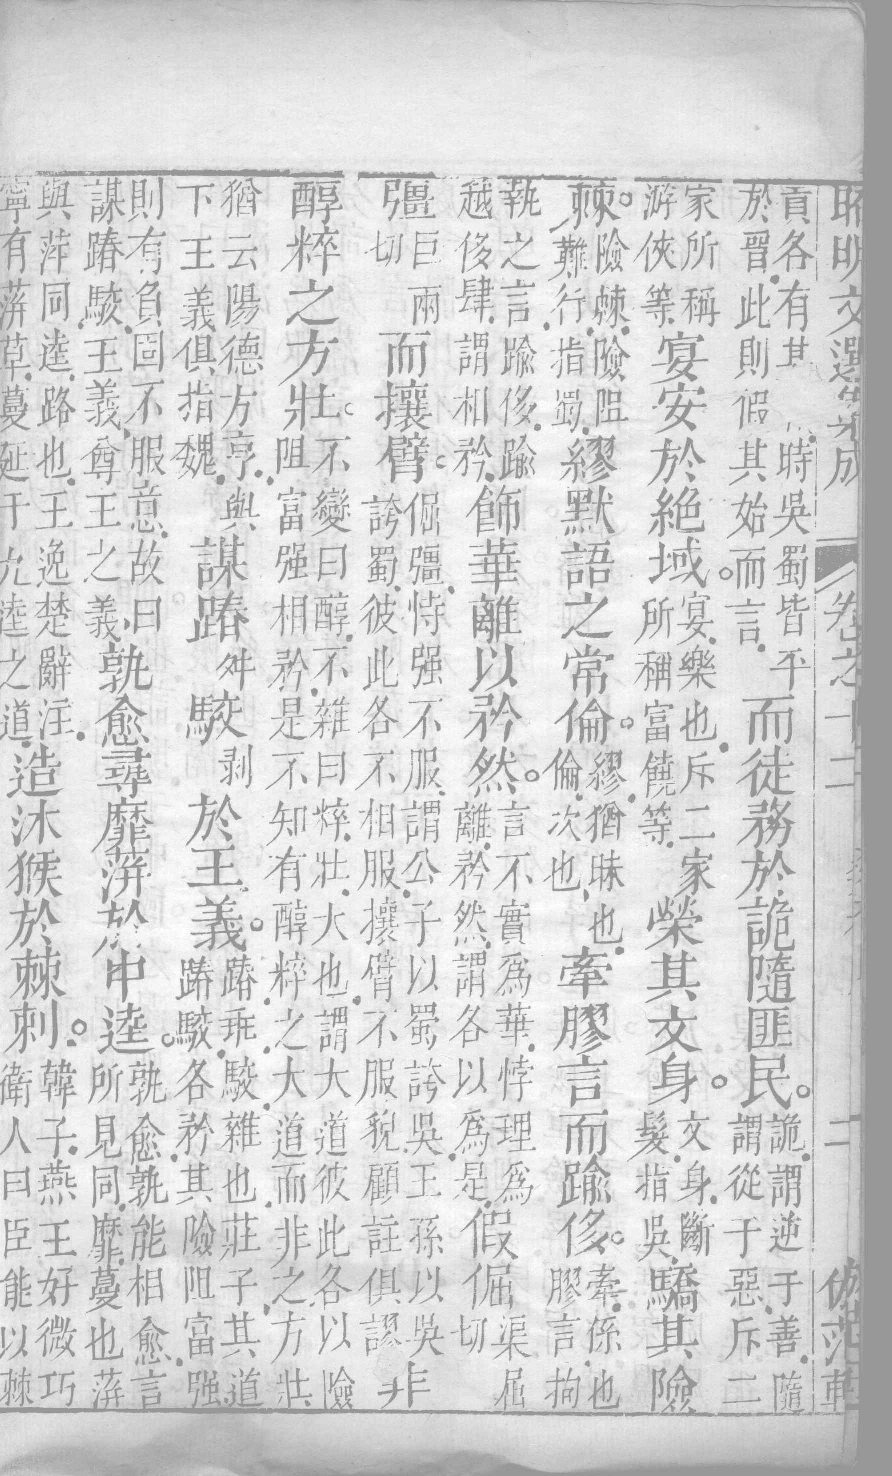 昭明文選集成　卷之十二　二　仿范軒
貢各有其時吳蜀皆平於晉此則假其始而言而徒務於詭隨匪民。詭謂逆于善隨謂從于惡斥二
家所稱游俠等宴安於絕域。宴樂也斥二家所稱富饒等榮其文身。文身斷髮指吳驕其險
棘。險棘險阻難行指蜀繆默語之常倫。繆猶昧也倫次也牽膠言而踰侈。牽係也膠言拘
執之言踰侈踰越侈肆謂相矜飾華離以矜然。言不實為華悖理為離矜然謂各以為是假倔渠屈切
彊巨兩切而攘臂。倔彊恃强不服謂公子以蜀誇吳王孫以吳誇蜀彼此各不相服攘臂不服貌顧註俱謬非
醇粹之方壯。不變曰醇不雜曰粹壯大也謂大道彼此各以險阻富强相矜是不知有醇粹之大道而非之方壯
猶云陽德方亨與下王義俱指魏謀踳舛駮剥於王義。踳乖駮雜也莊子其道踳駮各矜其險阻富强
則有負固不服意故曰謀踳駮王義尊王之義孰愈尋靡蓱於中逵。孰愈孰能相愈言所見同靡蔓也蓱
與萍同逵路也王逸楚辭注寧有蓱草蔓延于九逵之道造沐猴於棘刺。韓子燕王好微巧衛人曰臣能以棘